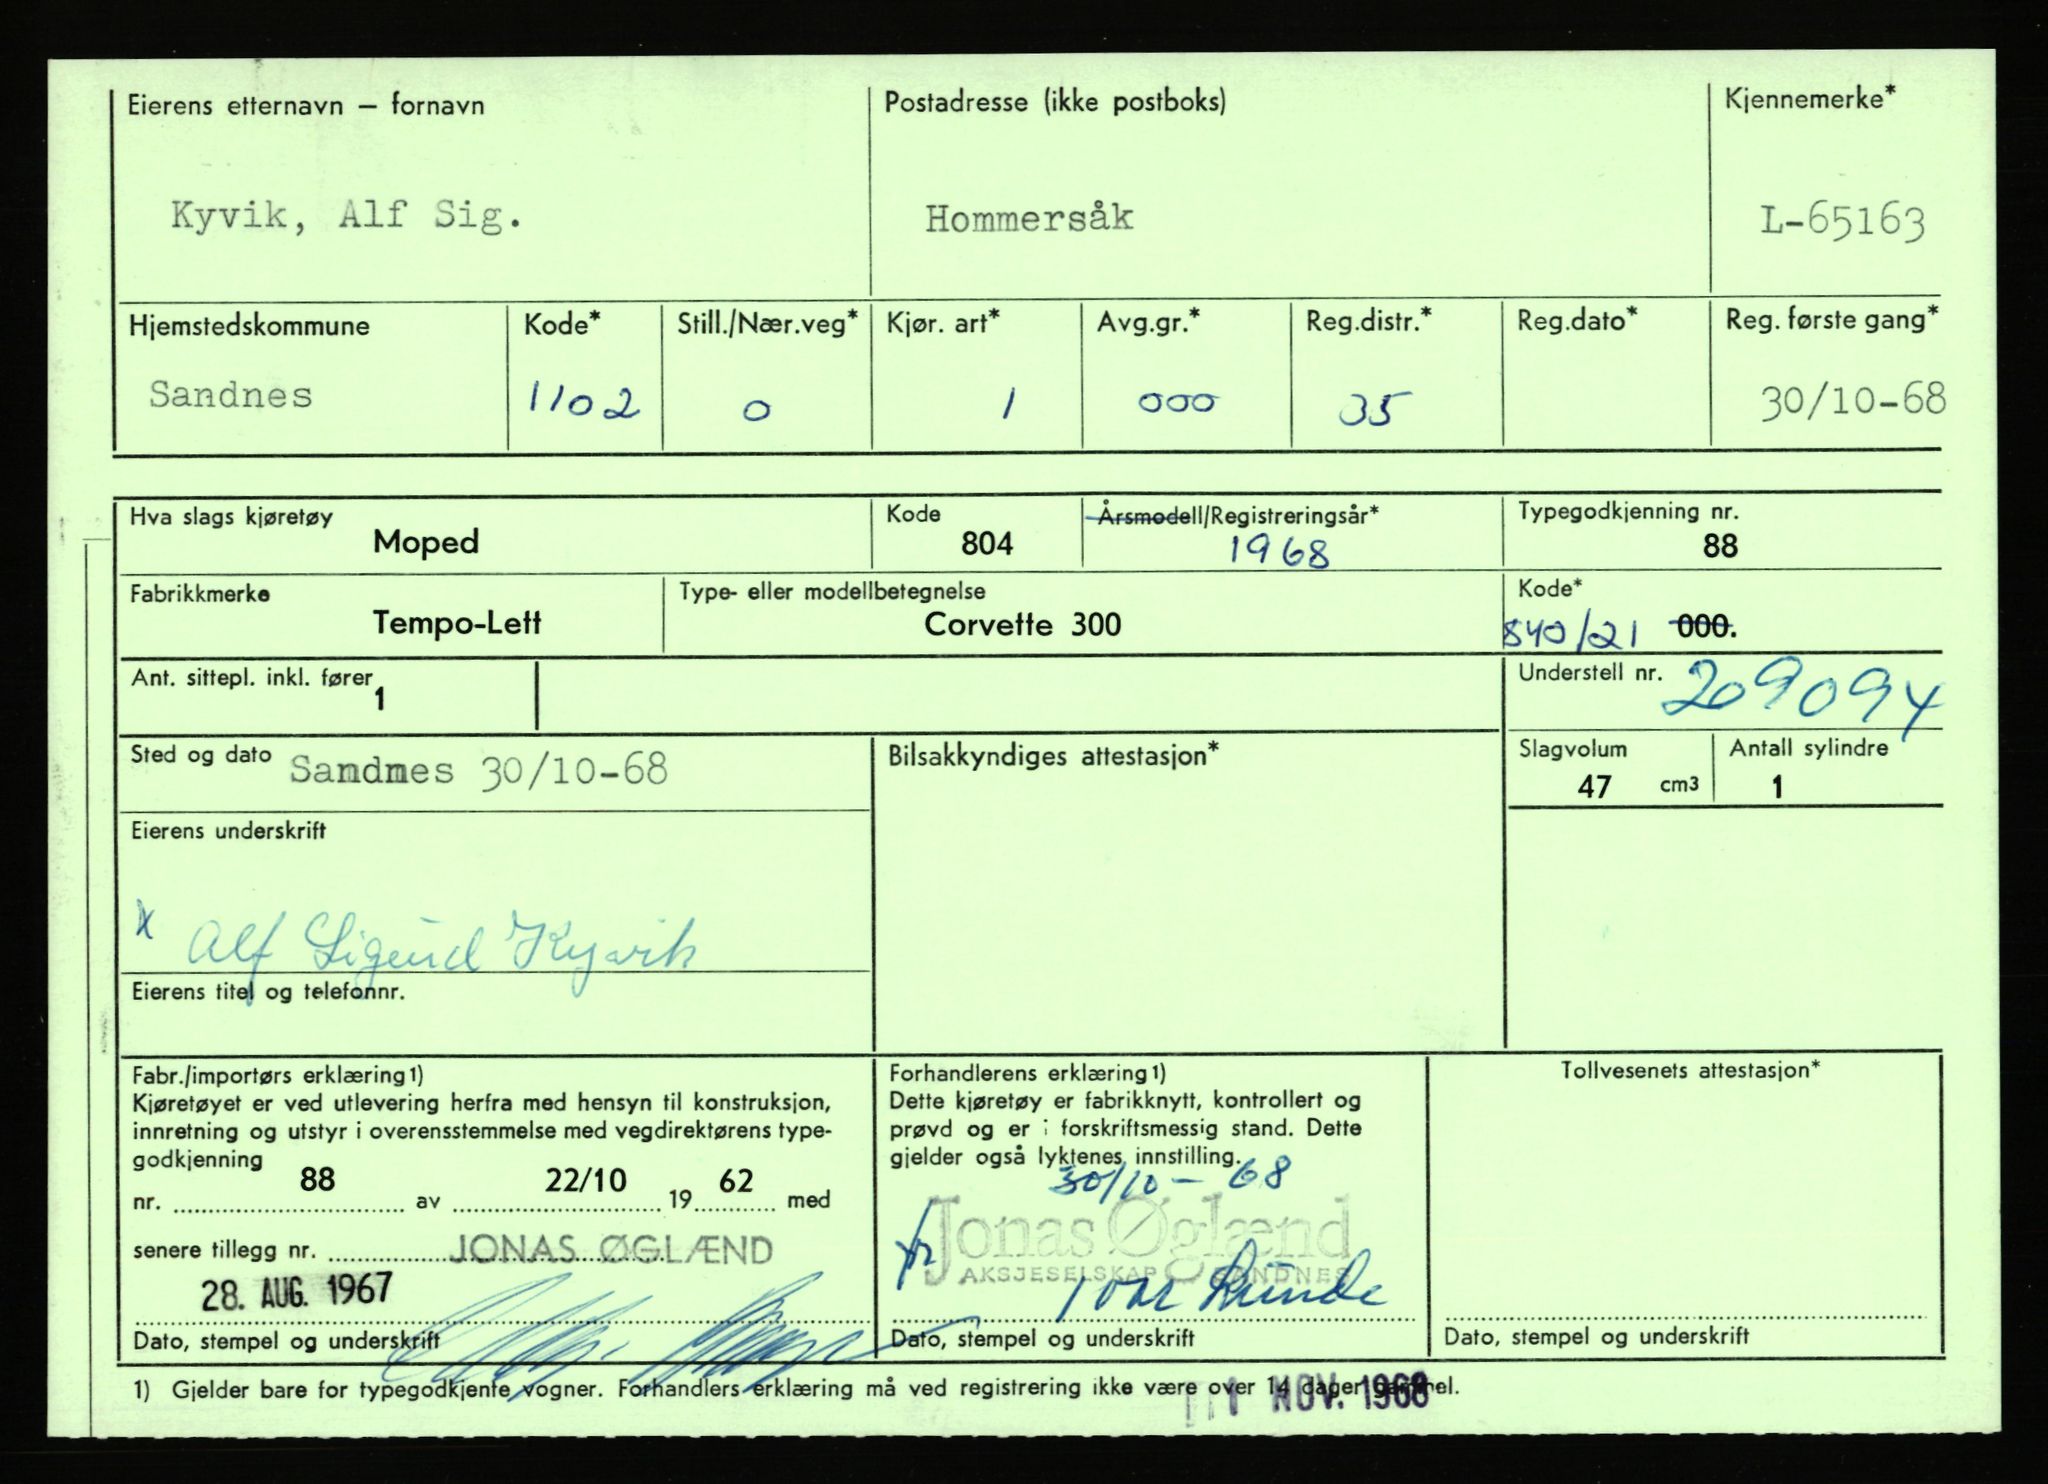 Eierens etternavn – fornavn
Postadresse (ikke postboks)
Kjennemerke*
Kyvik, Alf Sig.
Hommersåk
L-65163
Hjemstedskommune
Kode*
Still./Nær.veg*
Kjør. art*
Avg.gr.*
Reg.distr.*
Reg.dato*
Reg. første gang*
Sandnes
1102
0
1
000
35
30/10-68
Hva slags kjøretøy
Moped
Kode
804
Årsmodell/Registreringsår*
1968
Typegodkjenning nr.
88
Fabrikkmerke
Tempo-Lett
Type- eller modellbetegnelse
Corvette 300
Kode*
840/21 000.
Ant. sittepl. inkl. fører
1
Understell nr.
209094
Sted og dato Sandnes 30/10-68
Bilsakkyndiges attestasjon*
Slagvolum
47 cm3
Antall sylindre
1
Eierens underskrift
x Alf Sigurd Kyvik
Eierens titel og telefonnr.
Fabr./importørs erklæring1)
Kjøretøyet er ved utlevering herfra med hensyn til konstruksjon,
innretning og utstyr i overensstemmelse med vegdirektørens type-
godkjenning
nr. 88 av 22/10 19 62 med
senere tillegg nr. JONAS ØGLÆND
28. AUG. 1967
Dato, stempel og underskrift
Forhandlerens erklæring1)
Dette kjøretøy er fabrikknytt, kontrollert og
prøvd og er i forskriftsmessig stand. Dette
gjelder også lyktenes innstilling.
30/10-68
fr Jonas Øglænd
AKSJESELSKAP SANDNES
Dato, stempel og underskrift
Tollvesenets attestasjon*
Dato, stempel og underskrift
1) Gjelder bare for typegodkjente vogner. Forhandlers erklæring må ved registrering ikke være over 14 dager gammel.
1 NOV. 1968